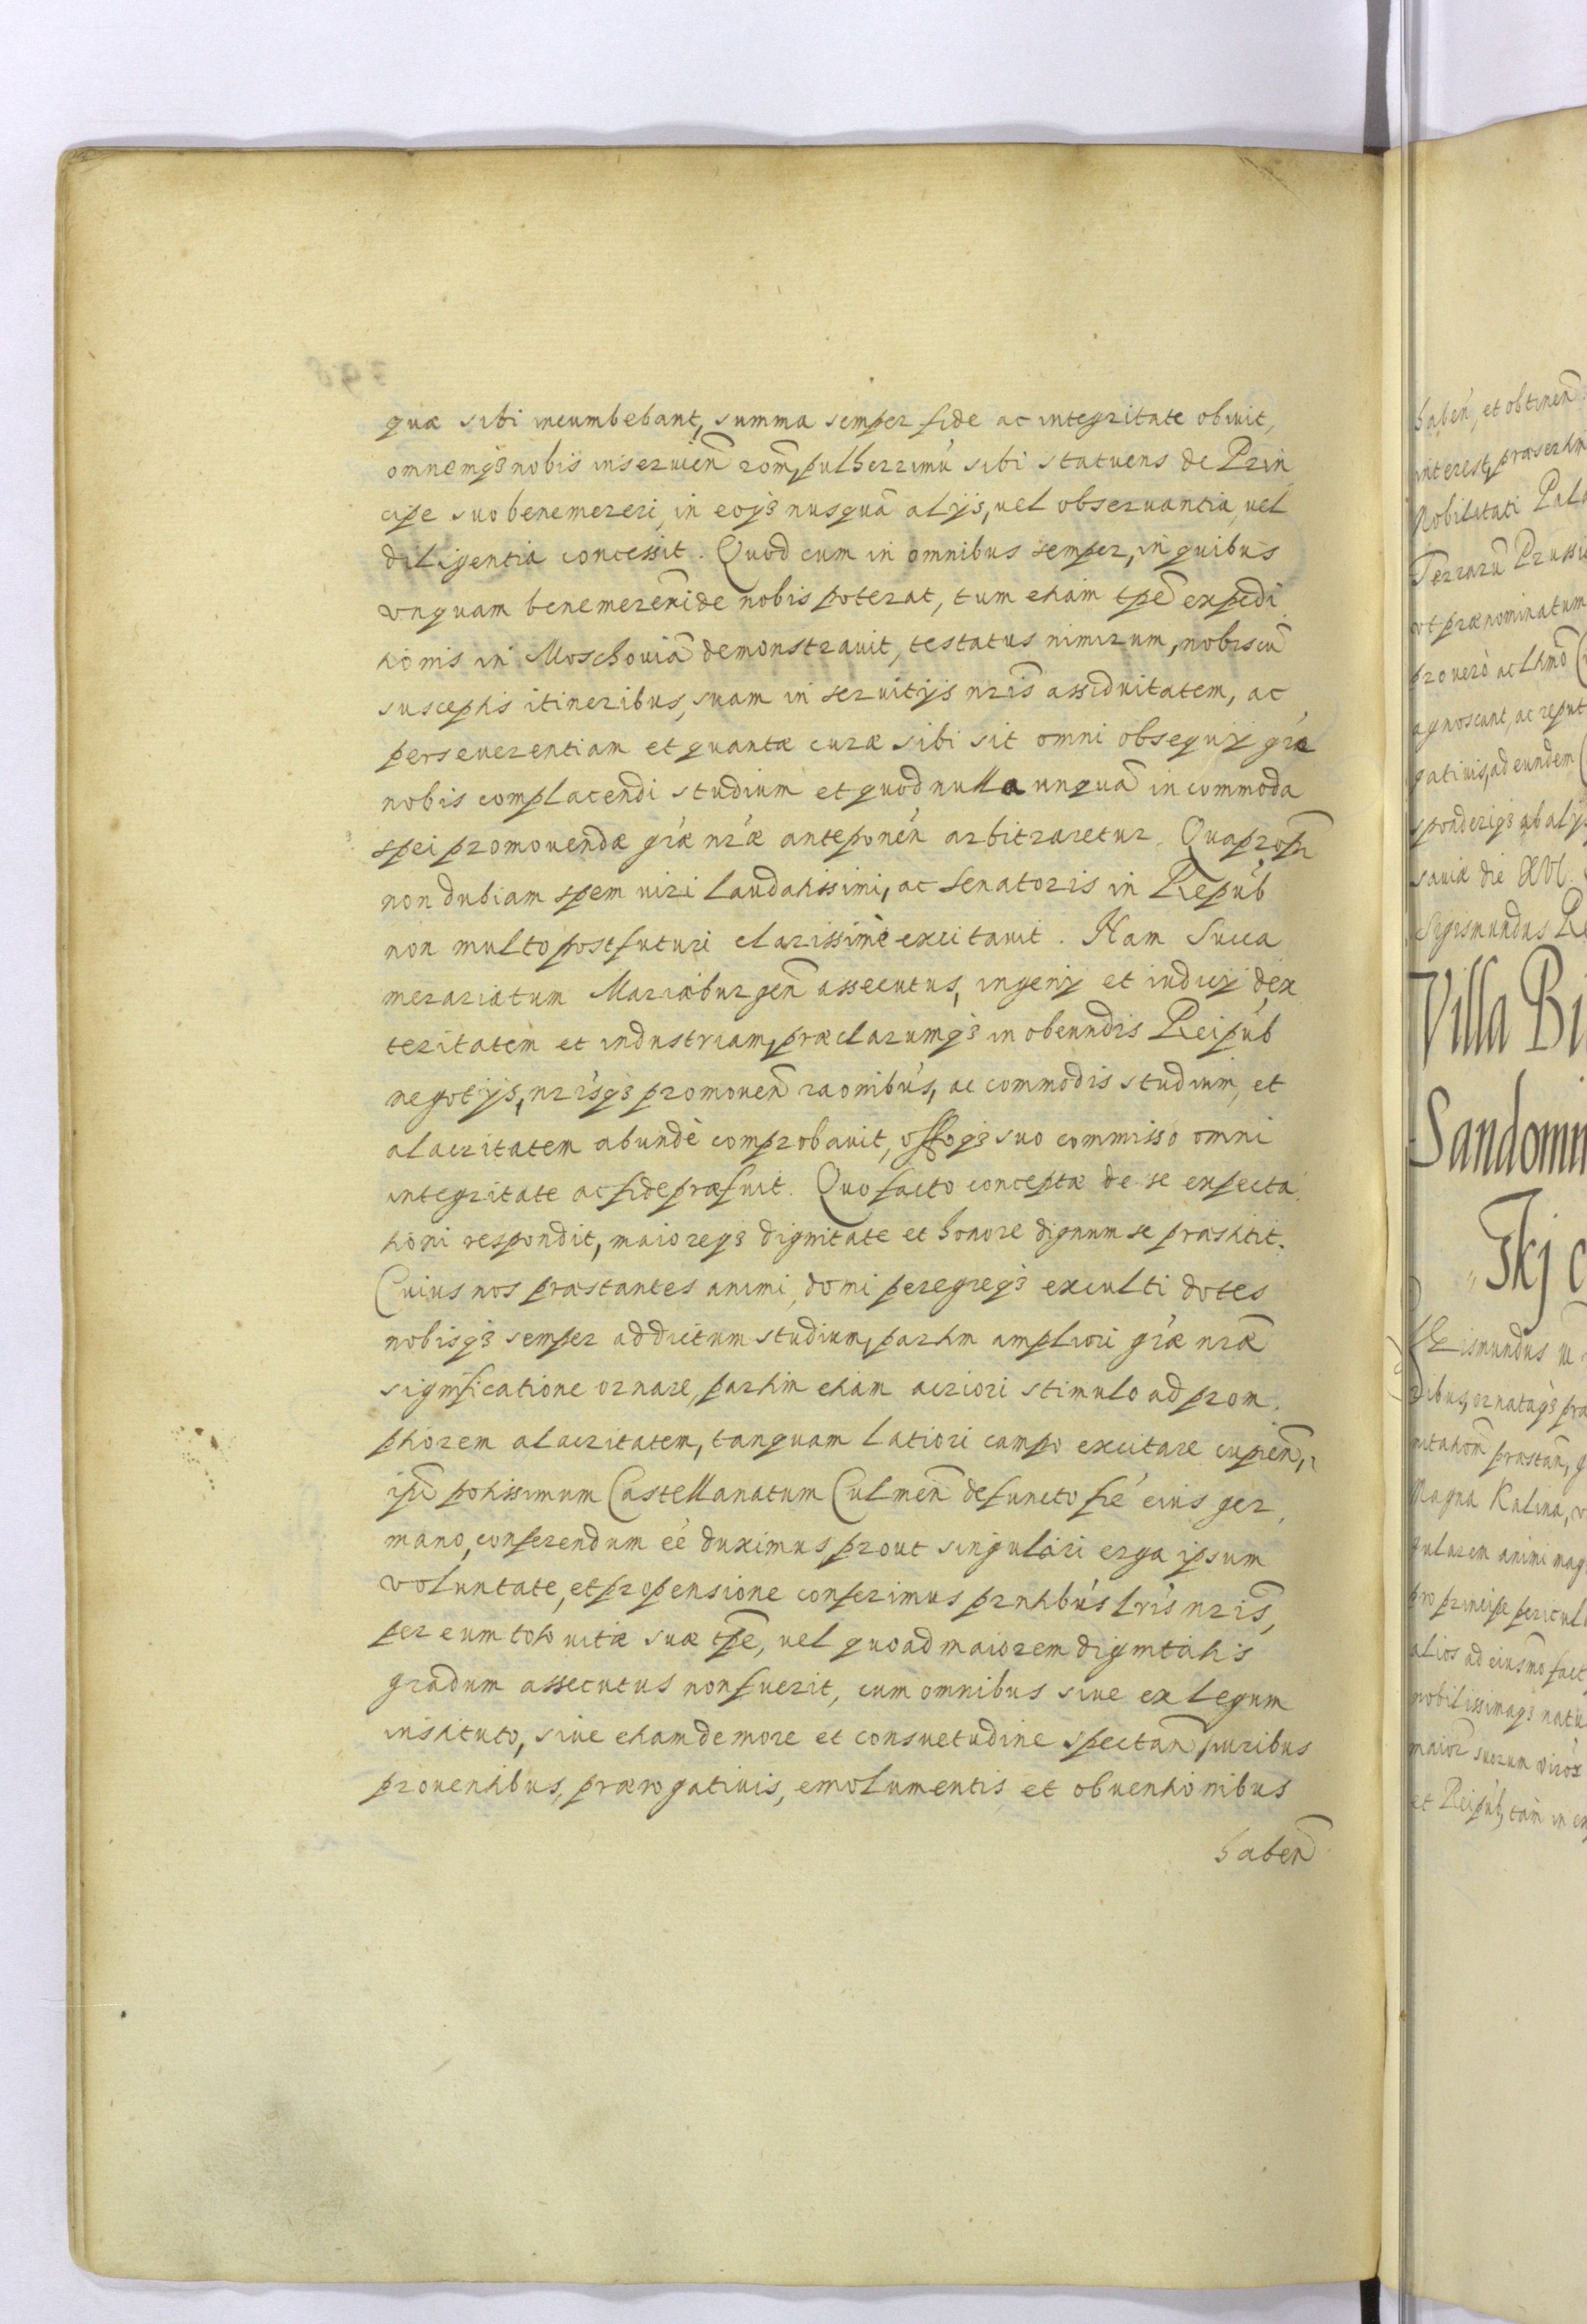 quæ sibi incumbebant, summa semper fide ac integritate obiuit,
omnemqꝫ nobis inseruien̄ rom̄, pulherrimū sibi statuens de Prin
cipe suo benemereri, in eoqꝫ nusquā alijs, uel obseruantia, uel
diligentia concessit. Quod cum in omnibus semper, in quibus
vnquam benemeren̄i de nobis poterat, tum etiam tpē expedi
tionis in Moschouiā demonstrauit, testatus nimirum, nobiscū
susceptis itineribus, suam in seruitijs nr̄is assiduitatem, ac
perseuerentiam et quantæ curæ sibi sit omni obsequij gr̄a
nobis complacendi studium et quod nulla unquā incommoda
spei promouendæ gr̄æ nr̄æ anteponen̄ arbitraretur. Quaprop̄r
non dubiam spem uiri laudatissimi, ac senatoris in Repub̄
non multo post futuri clarissimè excitauit. Nam Succa
merariatum Mariæburgen̄ assecutus, ingenij et iudicij dex
teritatem et industriam, præclarumqꝫ in obeundis Reipub̄
negotijs, nr̄isqꝫ promouen̄ raonibus, ac commodis studium, et
alacritatem abundè comprobauit, offoqꝫ suo commisso omni
integritate ac fide præfuit. Quo facto conceptæ de se expecta
tioni respondit, maioreqꝫ dignitate et honore dignum se præstitit.
Cuius nos præstantes animi, domi peregreqꝫ exculti dotes
nobisqꝫ semper addictum studium, partim ampliori gr̄æ nr̄æ
significatione ornare, partim etiam acriori stimulo ad prom
ptiorem alacritatem, tanquam latiori campo excitare cupien̄,
ipsi potissimum Castellanatum Culmen̄ defuncto fr̄e eius ger
mano, conferendum eē duximus prout singulari erga ipsum
voluntate, et propensione conferimus pr̄ntibus lr̄is nr̄is,
per eum toto uitæ suæ tpē, uel quoad maiorem dignitatis
gradum assecutus non fuerit, cum omnibus siue ex legum
instituto, siue etiam de more et consuetudine spectan̄ iuribus
prouentibus, prærogatiuis, emolumentis et obuentionibus
haben̄
haben̄, et obtinen̄
interest, præsertim
Nobilitati Pala
Terrarū Prussi
vt prænominatum
pro uero ac ltimō
agnoscant, ac reput
gatiuis, ad eundem
sponderiqꝫ ab alijs
sauiæ die XVI.
Sigismundus Re
Villa Bi
Sandomi
Skj c
Sigismundus
ribus, ornataqꝫ præ
præstan̄,
Magna Kalina, v
gularem animi mag
pro principe pericul
alios ad eiusmō fact
nobilissimaqꝫ natu
maior̄ suorum
et Reipub̄, tam in ex